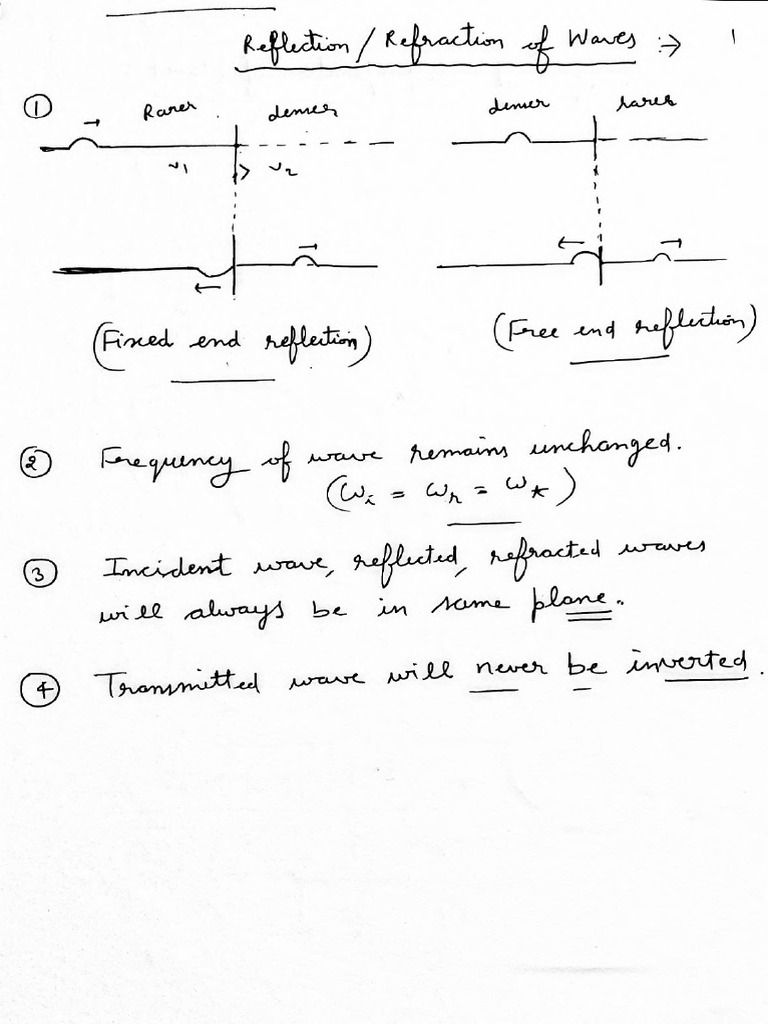 Reflection / Refraction of Waves :→ 1
① Rarer denser denser rarer
v1 > v2
(Fixed end reflection) (Free end reflection)
② Frequency of wave remains unchanged.
(ωi = ωr = ωt)
③ Incident wave, reflected, refracted waves
will always be in same plane.
④ Transmitted wave will never be inverted.